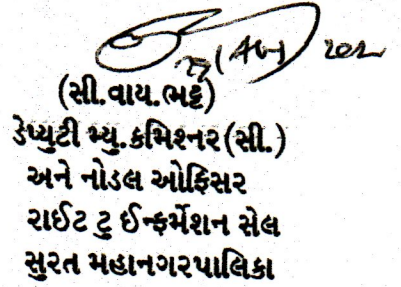 (સી.વાય.ભટ્ટ)
ડેપ્યુટી મ્યુ.કમિશ્નર(સી.)
અને નોડલ ઓફિસર
રાઈટ ટુ ઈન્ફર્મેશન સેલ
સુરત મહાનગરપાલિકા